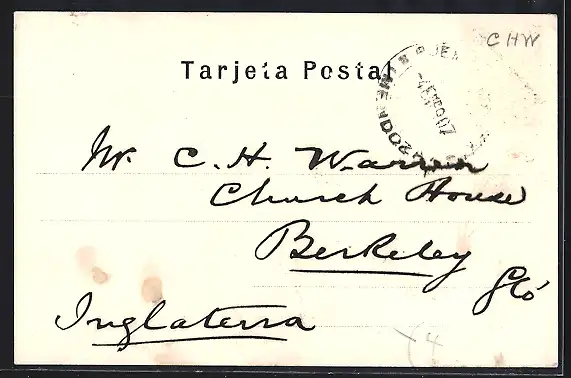 CHW
Tarjeta Postal
Mr. C. H. Warren
Church House
Berkeley
Glo'
Inglaterra
4